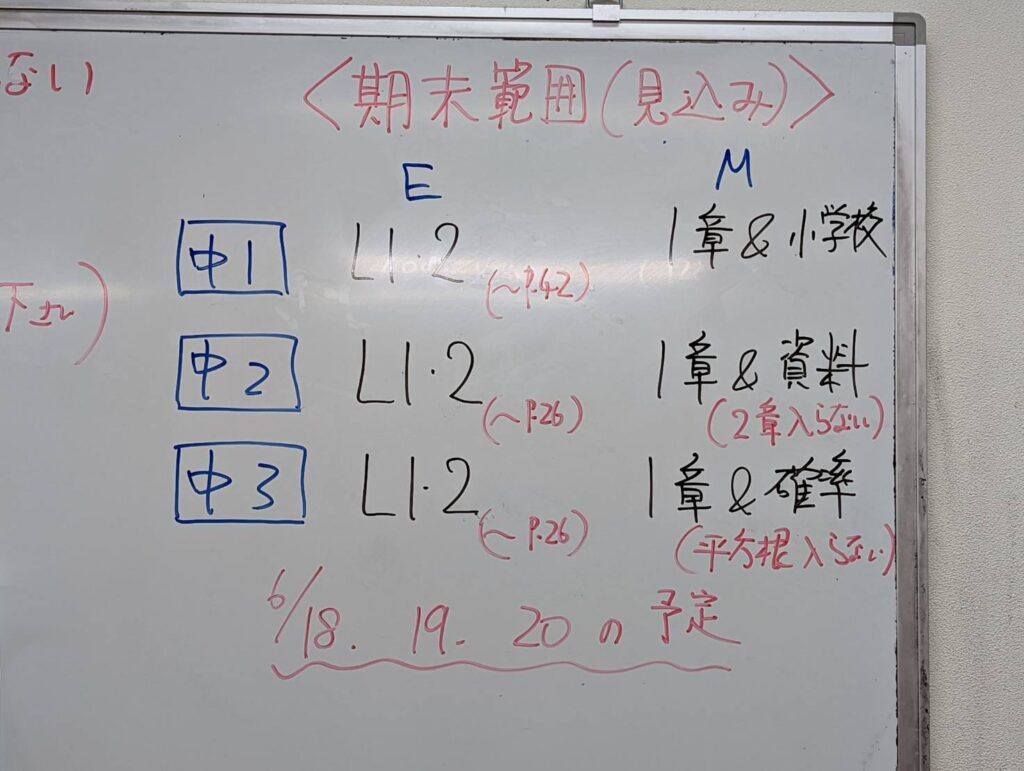 ない
下さい)
<期末範囲(見込み)>
E M
中1 L1・2 (~P.42) 1章&小学校
中2 L1・2 (~P.26) 1章&資料
(2章入らない)
中3 L1・2 (~P.26) 1章&確率
(平方根入らない)
6/18. 19. 20の予定